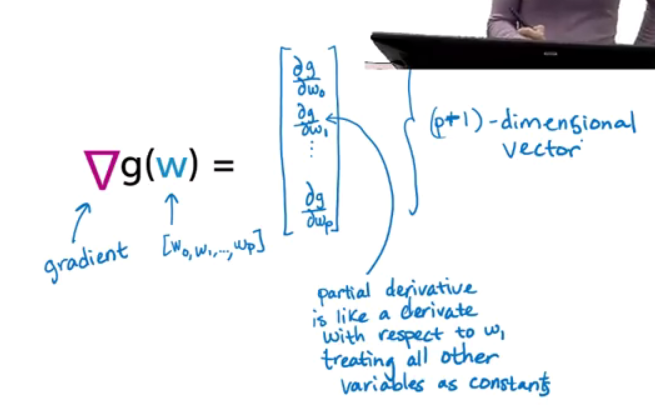 ∂g
∂w₀
∂g
∂w₁
⋮
∂g
∂wₚ
(p+1)-dimensional
vector
∇g(w) =
gradient
[w₀,w₁,...,wₚ]
partial derivative
is like a derivate
with respect to w₁
treating all other
variables as constants